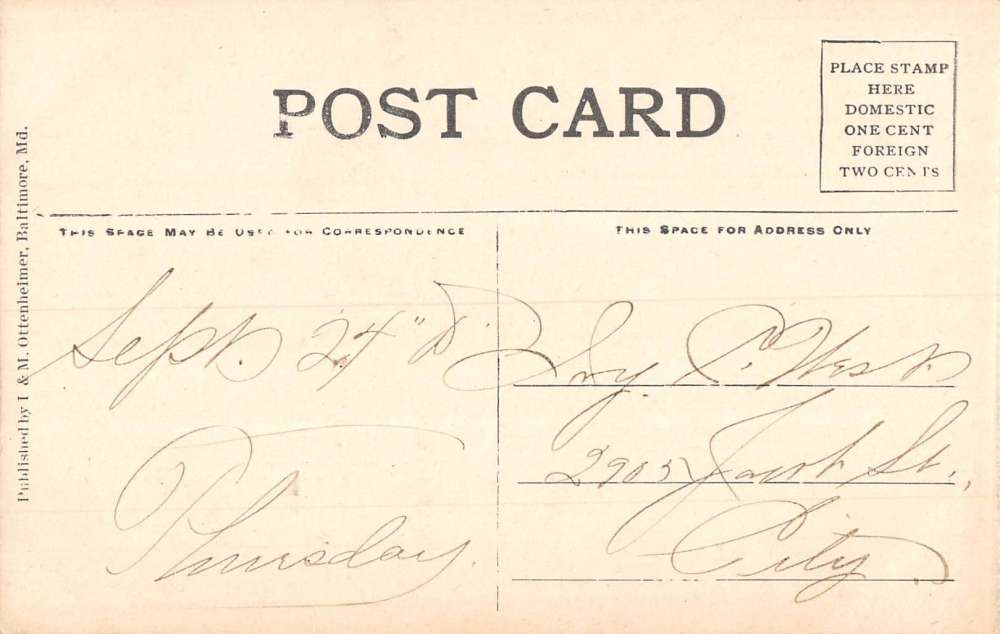 POST CARD
PLACE STAMP
HERE
DOMESTIC
ONE CENT
FOREIGN
TWO CENTS
Published by I & M. Ottenheimer, Baltimore, Md.
THIS SPACE MAY BE USED FOR CORRESPONDENCE
THIS SPACE FOR ADDRESS ONLY
Sept. 24"
Thursday.
Ivy C. West
2905 Jacob St,
City.